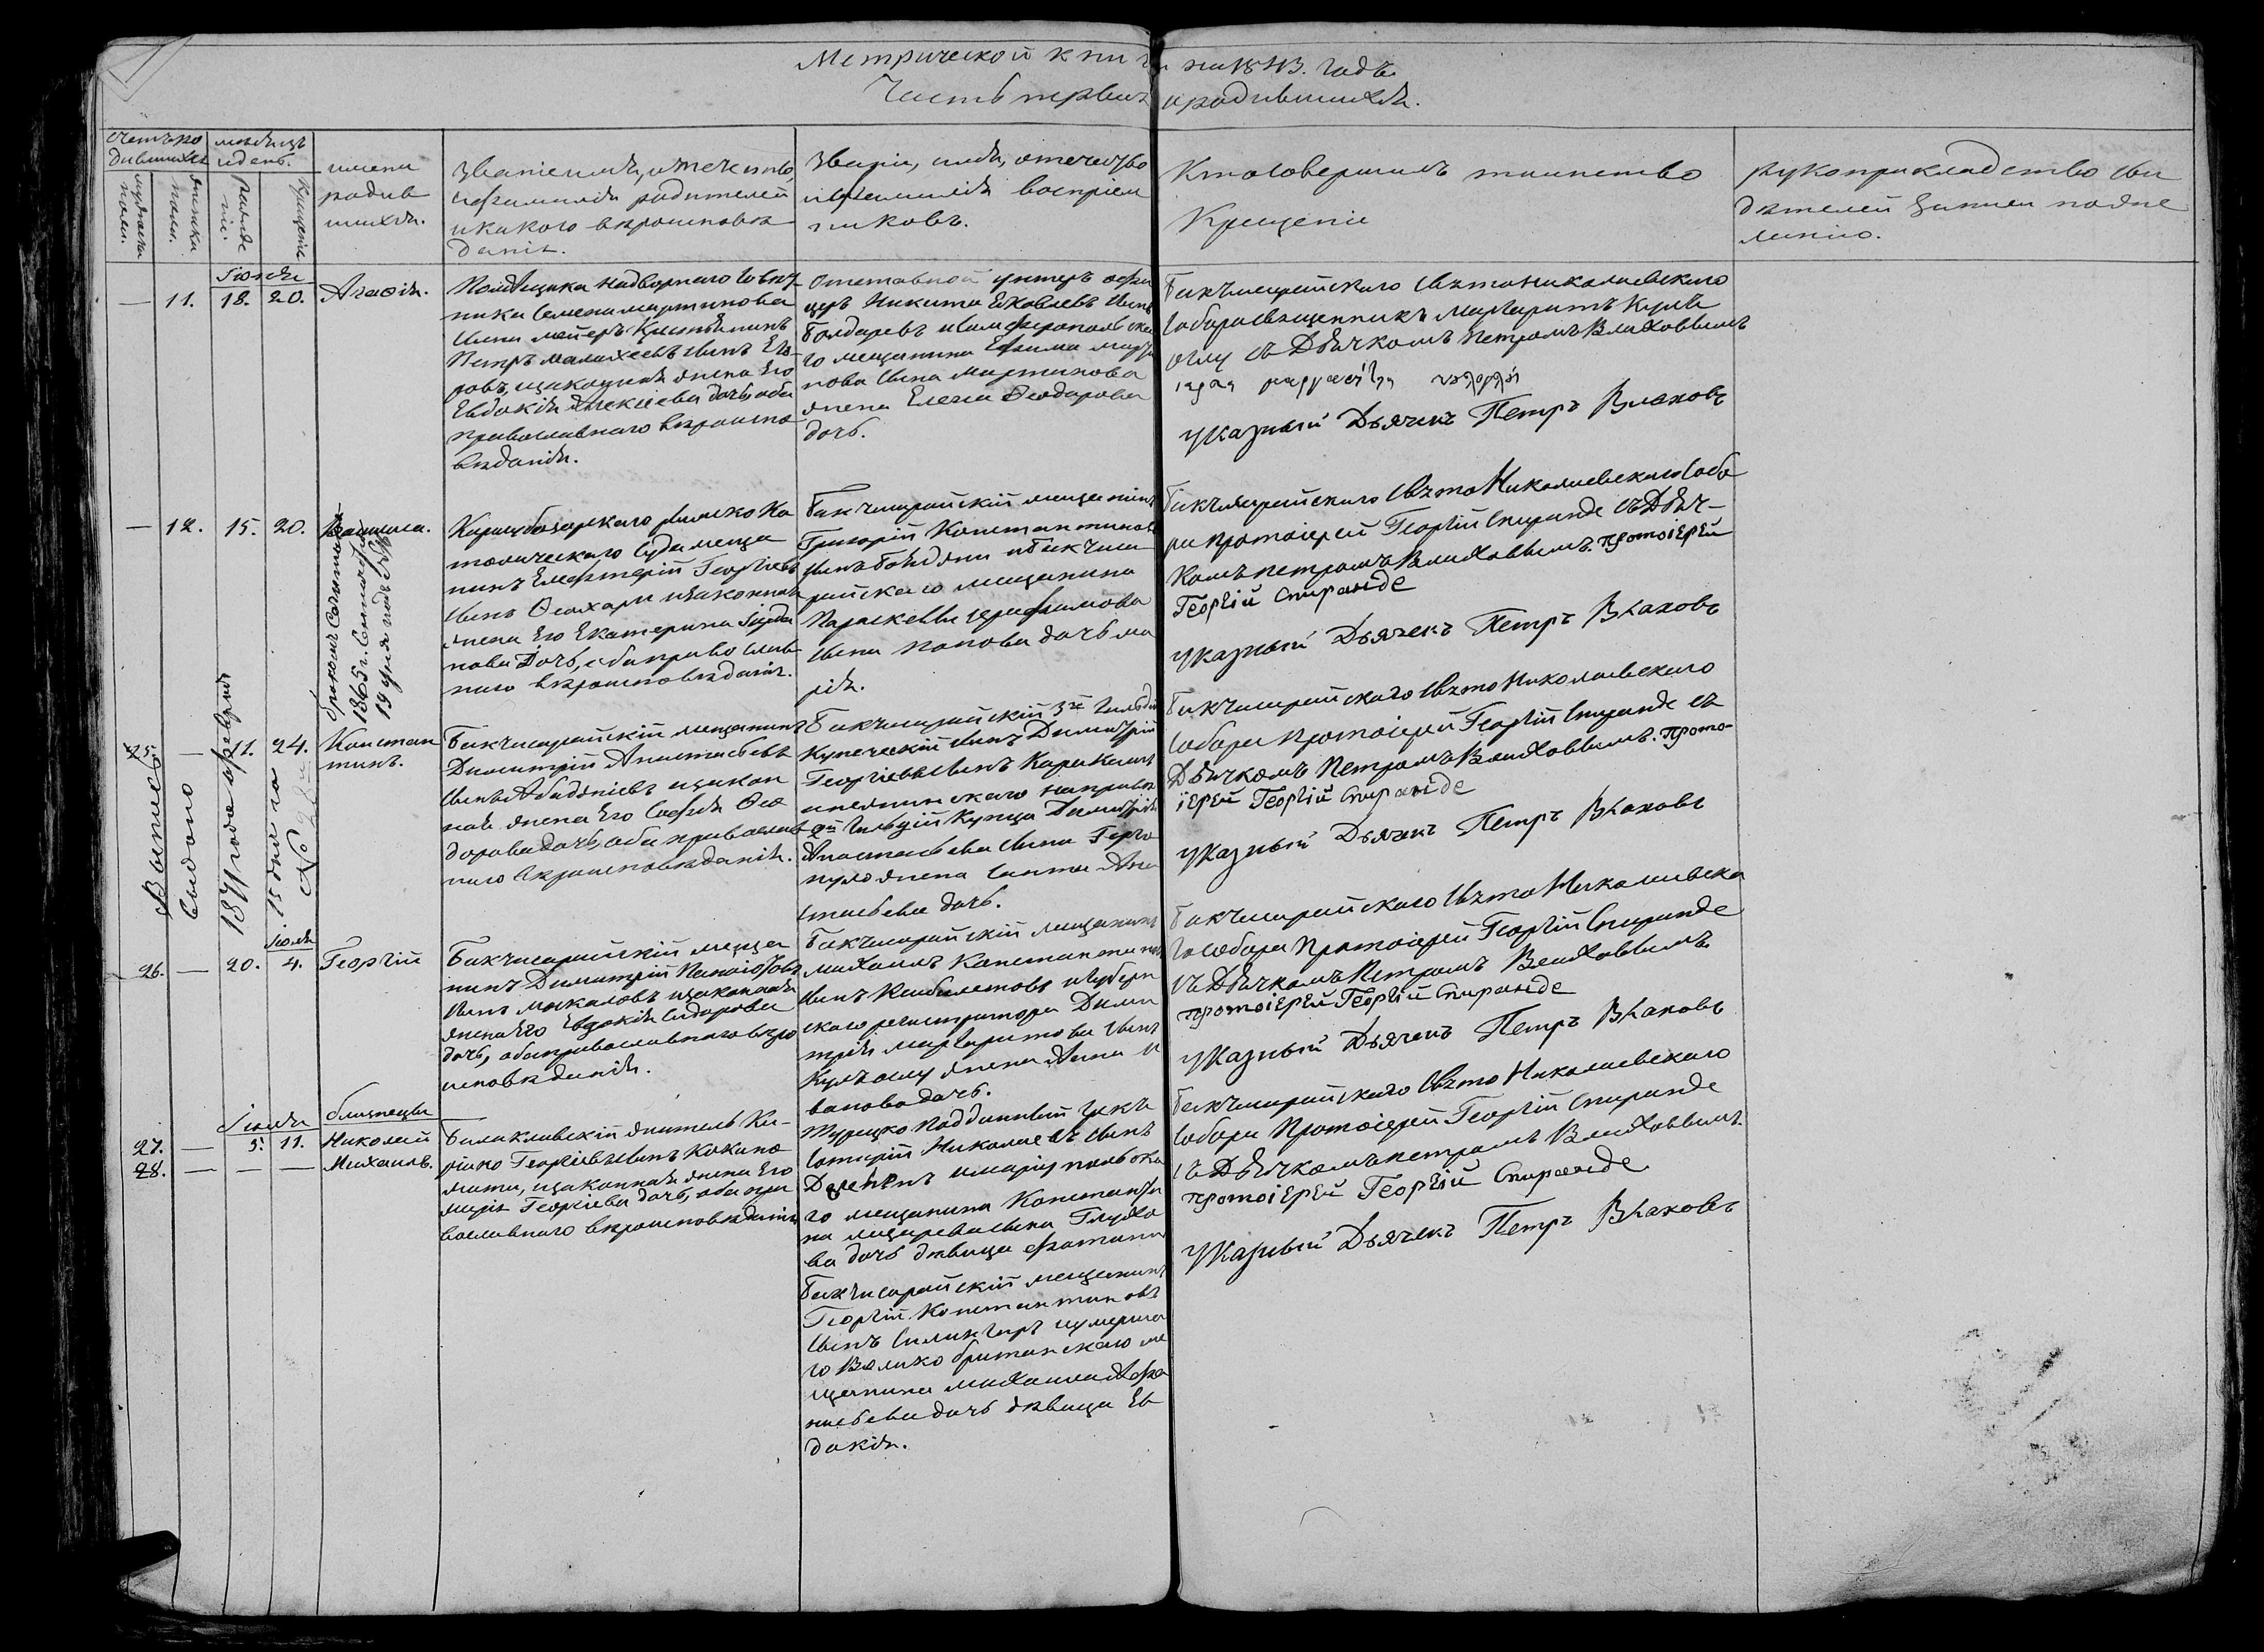 Метрической книги на 1843. годъ
Часть первая о родившихся.
счетъ ро
дившихся
мѣсяцъ
и день.
мужеска
полу.
женска
полу.
рожде
нія.
крещенія
имена
родив
шихся.
званіе имя, отечество
и фамилія родителей
и какого вѣроисповѣ
данія.
званіе, имя, отечество
и фамилія воспріем
никовъ.
Кто совершилъ таинство
Крещенія
рукоприкладство сви
дѣтелей записи по же
ланію.
Іюня
— 11. 18. 20. Агафія.
Помѣщика надворнаго совѣт
ника Семена мартинова
сына
Петръ сынъ Его
ровъ, и законная жена его
Евдокія Алексіева дочь, оба
православнаго вѣроиспо
вѣданія.
Отставной унтеръ офи
церъ Никита Яковлевъ сынъ
Бондаревъ и Симферопольска
го мещанина Ефима март
нова сына Мартинова
жена Елена Феодорова
дочь.
Бахчисарайскаго Свято Николаевскаго
собора священникъ Маргаритъ Кулъ
оглу съ Дьячкомъ Петромъ Влаховымъ
указный Дьячекъ Петръ Влаховъ
— 12. 15. 20.
бракомъ Сочитана
1865 г. Сентября
19 дня подъ №
Карасубазарскаго римско Ка
толическаго суда меща
нинъ Елефтерій Георгіевъ
сынъ Феохари и законная
жена его Екатерина
нова Дочь, оба православ
наго вѣроисповѣданія.
Бахчисарайскій мещанинъ
Григорій Константиновъ
сынъ и бахчиса
райскаго мещанина
Параскевы
сына Попова дочь ма
рія.
Бахчисарайскаго Свято Николаевскаго Собо
ра протоіерей Георгій Спиранде съ Дьяч-
комъ петромъ Влаховымъ. протоіерей
Георгій Спиранде
указный Дьячекъ Петръ Влаховъ
Выписъ
выдано
1871 года февраля
15 дня за
№
25. — 11. 24. Констан
тинъ.
Бахчисарайскій мещанинъ
Димитрій Анастасьевъ
сынъ и закон
ная жена его Софія Фео
дорова дочь, оба православ
наго вѣроисповѣданія.
Бахчисарайскій 3й гильдіи
Купеческій сынъ Димитрій
Георгіевъ сынъ
2й Гильдіи Купца Димитрія
Анастасьева сына
жена Ана
стасьева дочь.
Бахчисарайскаго Свято Николаевскаго
собора протоіерей Георгій Спиранде съ
Дьячкомъ Петромъ Влаховымъ. прото-
іерей Георгій Спиранде
указный Дьячекъ Петръ Влаховъ
Іюля
26. — 20. 4. Георгій
Бахчисарайскій меща
нинъ Димитрій
сынъ и законная
жена его Евдокія Сидорова
дочь, оба православнаго вѣро
исповѣданія.
Бахчисарайскій мещанинъ
михаилъ Константиновъ
сынъ и губерн
скаго регистратора Дими
трія Маргаритова сына
Кулъ оглу жена Анна И
ванова дочь.
Бахчисарайскаго Свято Николаевска
го собора Протоіерей Георгій Спиранде
съ Дьячкомъ Петромъ Влаховымъ.
протоіерей Георгій Спиранде
указный Дьячекъ Петръ Влаховъ
Іюля близнецы
27. — 5. 11. Николай
28. — — — Михаилъ.
Балаклавскій житель Ки-
ріако Георгіевъ сынъ
и законная жена его
марія Георгіева дочь, оба пра
вославнаго вѣроисповѣданія
Турецко Подданный грекъ
Николаевъ сынъ
и маріупольска
го мещанина Константи
на сына
ва дочь дѣвица
Бахчисарайскій мещанинъ
Георгій Константиновъ
сынъ и умерша
го Велико британскаго ме
щанина михаила Афа
насьева дочь дѣвица Ев
докія.
Бахчисарайскаго Свято Николаевскаго
собора Протоіерей Георгій Спиранде
съ Дьячкомъ петромъ Влаховымъ.
протоіерей Георгій Спиранде
указный Дьячекъ Петръ Влаховъ